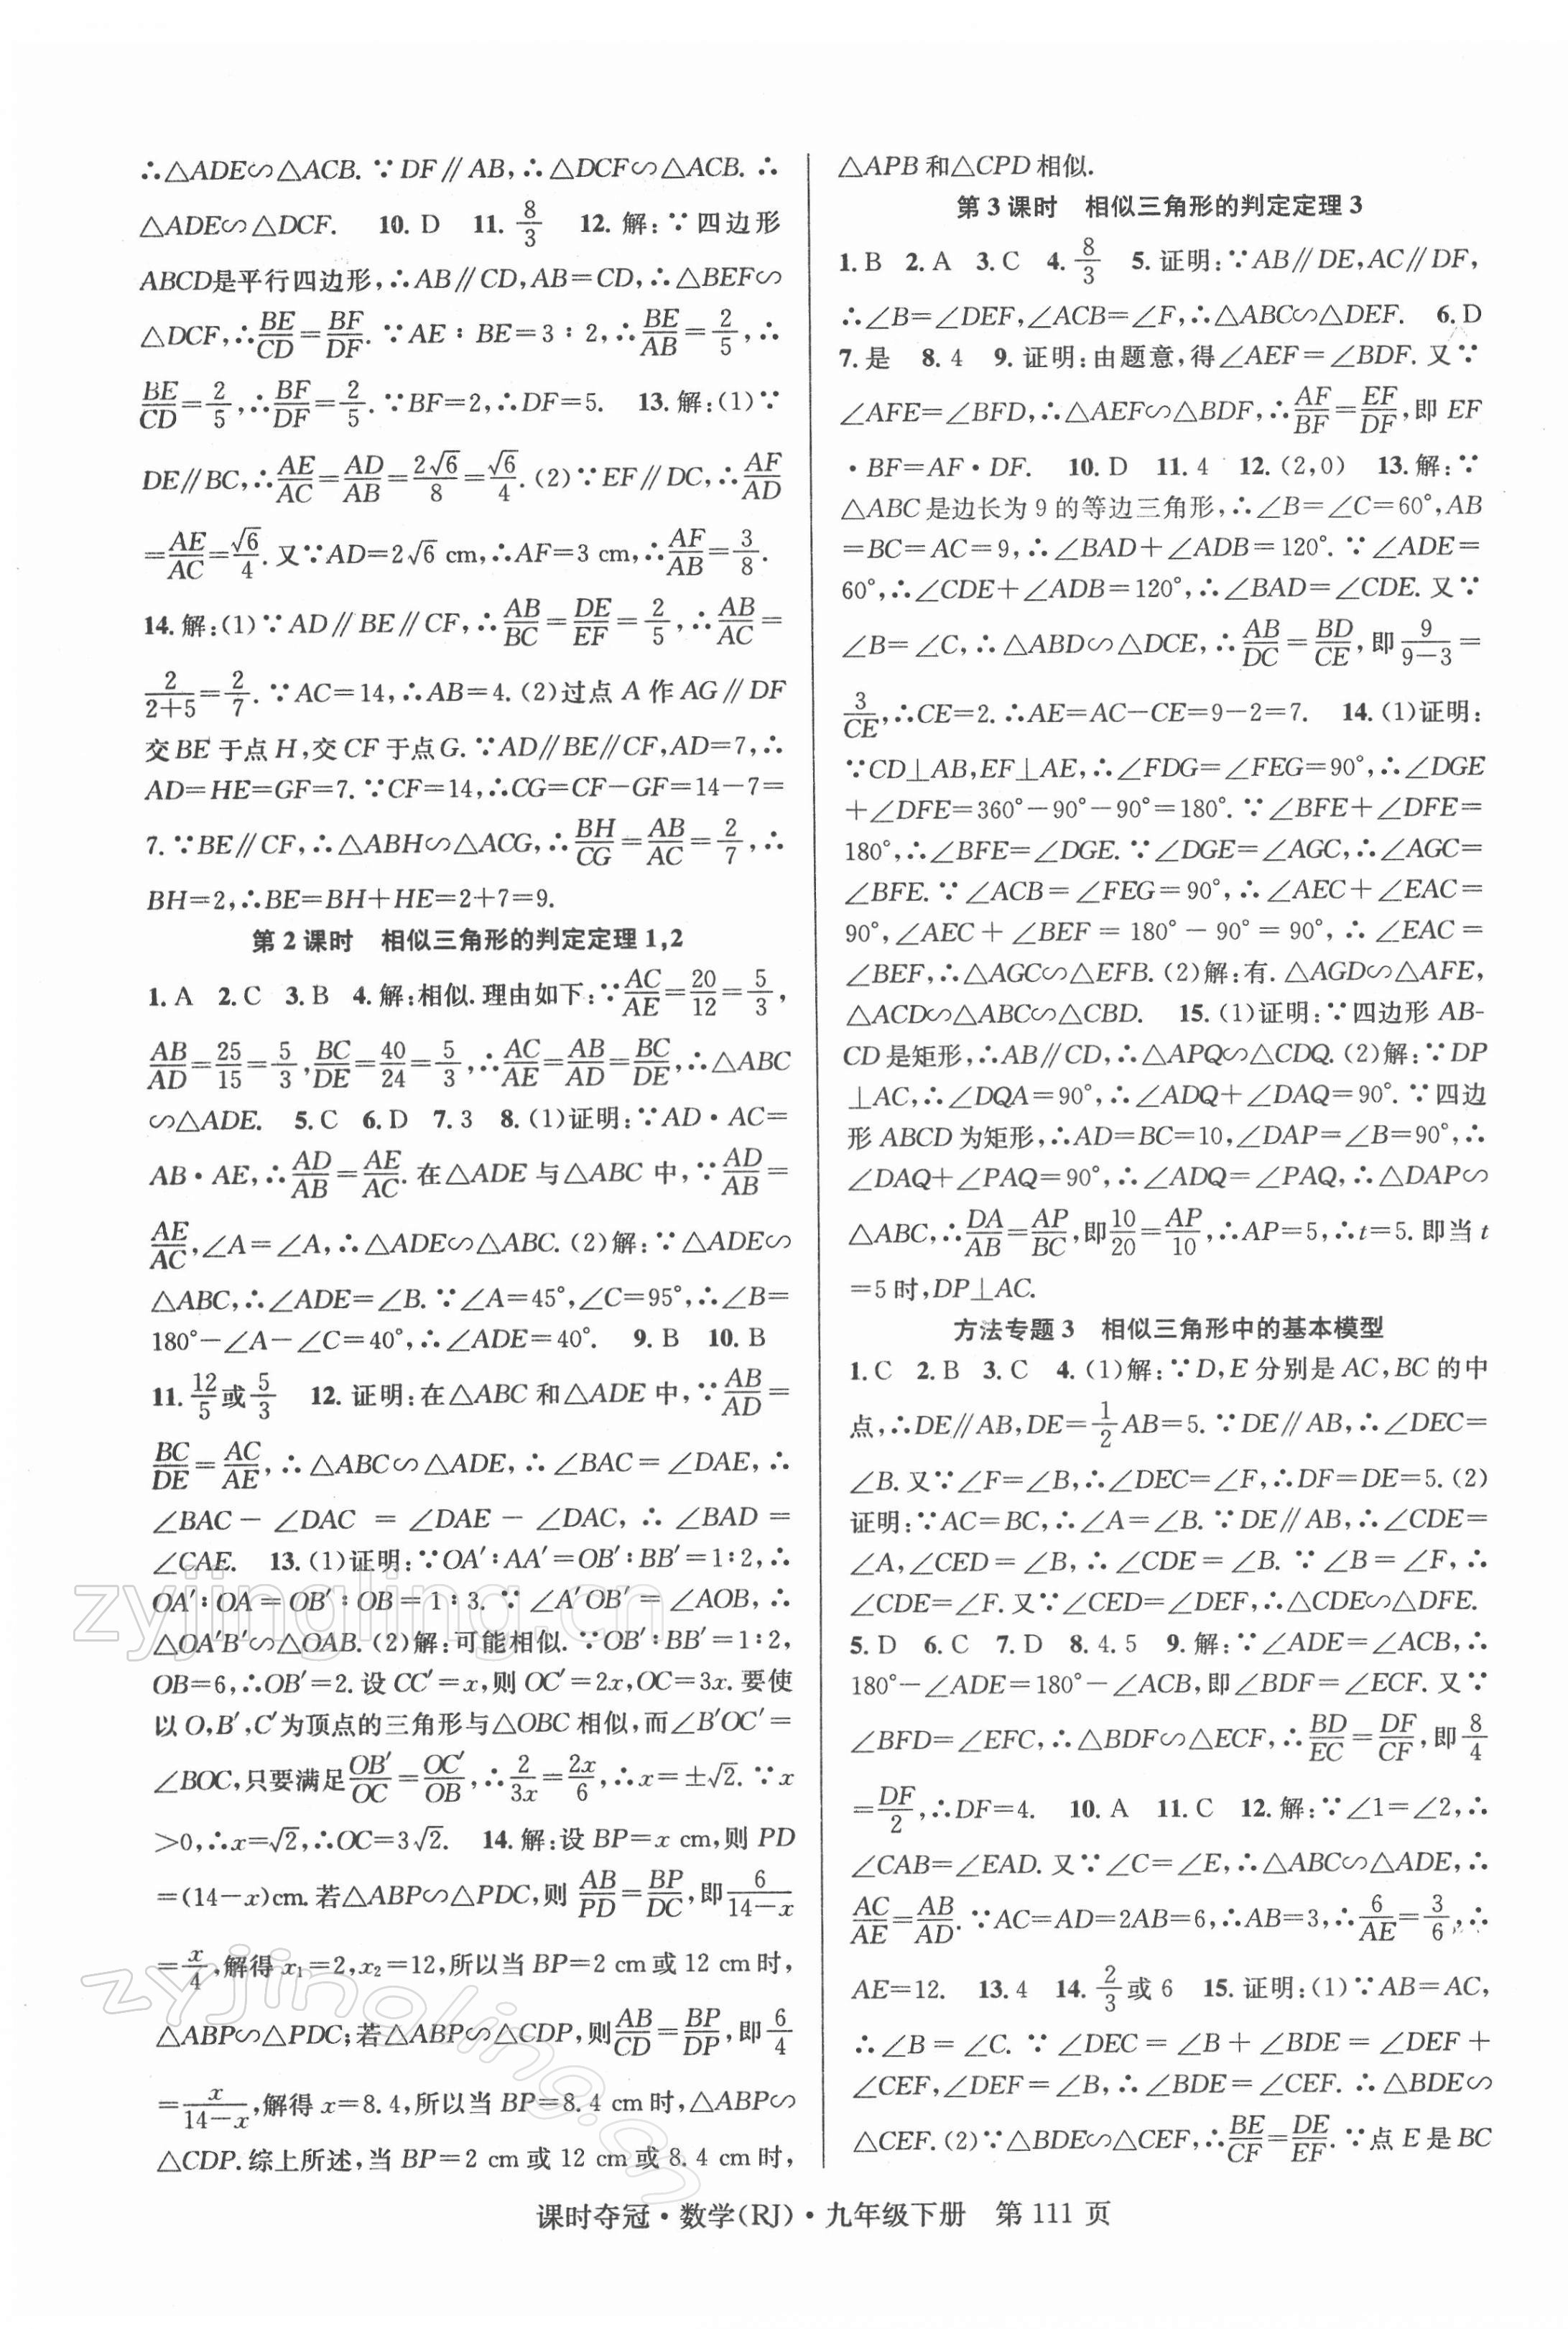 ∴△ADE∽△ACB. ∵DF∥AB,∴△DCF∽△ACB. ∴
△ADE∽△DCF. 10. D 11. 8/3 12. 解:∵四边形
ABCD是平行四边形,∴AB∥CD,AB=CD,∴△BEF∽
△DCF,∴BE/CD=BF/DF. ∵AE∶BE=3∶2,∴BE/AB=2/5,∴
BE/CD=2/5,∴BF/DF=2/5. ∵BF=2,∴DF=5. 13. 解:(1)∵
DE∥BC,∴AE/AC=AD/AB=2√6/8=√6/4. (2)∵EF∥DC,∴AF/AD
=AE/AC=√6/4. 又∵AD=2√6 cm,∴AF=3 cm,∴AF/AB=3/8.
14. 解:(1)∵AD∥BE∥CF,∴AB/BC=DE/EF=2/5,∴AB/AC=
2/(2+5)=2/7. ∵AC=14,∴AB=4. (2)过点A作AG∥DF
交BE于点H,交CF于点G. ∵AD∥BE∥CF,AD=7,∴
AD=HE=GF=7. ∵CF=14,∴CG=CF-GF=14-7=
7. ∵BE∥CF,∴△ABH∽△ACG,∴BH/CG=AB/AC=2/7,∴
BH=2,∴BE=BH+HE=2+7=9.
第2课时 相似三角形的判定定理1,2
1. A 2. C 3. B 4. 解:相似. 理由如下:∵AC/AE=20/12=5/3,
AB/AD=25/15=5/3,BC/DE=40/24=5/3,∴AC/AE=AB/AD=BC/DE,∴△ABC
∽△ADE. 5. C 6. D 7. 3 8. (1)证明:∵AD·AC=
AB·AE,∴AD/AB=AE/AC. 在△ADE与△ABC中,∵AD/AB=
AE/AC,∠A=∠A,∴△ADE∽△ABC. (2)解:∵△ADE∽
△ABC,∴∠ADE=∠B. ∵∠A=45°,∠C=95°,∴∠B=
180°-∠A-∠C=40°,∴∠ADE=40°. 9. B 10. B
11. 12/5或5/3 12. 证明:在△ABC和△ADE中,∵AB/AD=
BC/DE=AC/AE,∴△ABC∽△ADE,∴∠BAC=∠DAE,∴
∠BAC-∠DAC=∠DAE-∠DAC,∴∠BAD=
∠CAE. 13. (1)证明:∵OA′∶AA′=OB′∶BB′=1∶2,∴
OA′∶OA=OB′∶OB=1∶3. ∵∠A′OB′=∠AOB,∴
△OA′B′∽△OAB. (2)解:可能相似. ∵OB′∶BB′=1∶2,
OB=6,∴OB′=2. 设CC′=x,则OC′=2x,OC=3x. 要使
以O,B′,C′为顶点的三角形与△OBC相似,而∠B′OC′=
∠BOC,只要满足OB′/OC=OC′/OB,∴2/3x=2x/6,∴x=±√2. ∵x
>0,∴x=√2,∴OC=3√2. 14. 解:设BP=x cm,则PD
=(14-x)cm. 若△ABP∽△PDC,则AB/PD=BP/DC,即6/(14-x)
=x/4,解得x₁=2,x₂=12,所以当BP=2 cm或12 cm时,
△ABP∽△PDC;若△ABP∽△CDP,则AB/CD=BP/DP,即6/4
=x/(14-x),解得x=8.4,所以当BP=8.4 cm时,△ABP∽
△CDP. 综上所述,当BP=2 cm或12 cm或8.4 cm时,
△APB和△CPD相似.
第3课时 相似三角形的判定定理3
1. B 2. A 3. C 4. 8/3 5. 证明:∵AB∥DE,AC∥DF,
∴∠B=∠DEF,∠ACB=∠F,∴△ABC∽△DEF. 6. D
7. 是 8. 4 9. 证明:由题意,得∠AEF=∠BDF. 又∵
∠AFE=∠BFD,∴△AEF∽△BDF,∴AF/BF=EF/DF,即EF
·BF=AF·DF. 10. D 11. 4 12. (2,0) 13. 解:∵
△ABC是边长为9的等边三角形,∴∠B=∠C=60°,AB
=BC=AC=9,∴∠BAD+∠ADB=120°. ∵∠ADE=
60°,∴∠CDE+∠ADB=120°,∴∠BAD=∠CDE. 又∵
∠B=∠C,∴△ABD∽△DCE,∴AB/DC=BD/CE,即9/(9-3)=
3/CE,∴CE=2. ∴AE=AC-CE=9-2=7. 14. (1)证明:
∵CD⊥AB,EF⊥AE,∴∠FDG=∠FEG=90°,∴∠DGE
+∠DFE=360°-90°-90°=180°. ∵∠BFE+∠DFE=
180°,∴∠BFE=∠DGE. ∵∠DGE=∠AGC,∴∠AGC=
∠BFE. ∵∠ACB=∠FEG=90°,∴∠AEC+∠EAC=
90°,∠AEC+∠BEF=180°-90°=90°,∴∠EAC=
∠BEF,∴△AGC∽△EFB. (2)解:有. △AGD∽△AFE,
△ACD∽△ABC∽△CBD. 15. (1)证明:∵四边形AB-
CD是矩形,∴AB∥CD,∴△APQ∽△CDQ. (2)解:∵DP
⊥AC,∴∠DQA=90°,∴∠ADQ+∠DAQ=90°. ∵四边
形ABCD为矩形,∴AD=BC=10,∠DAP=∠B=90°,∴
∠DAQ+∠PAQ=90°,∴∠ADQ=∠PAQ,∴△DAP∽
△ABC,∴DA/AB=AP/BC,即10/20=AP/10,∴AP=5,∴t=5. 即当t
=5时,DP⊥AC.
方法专题3 相似三角形中的基本模型
1. C 2. B 3. C 4. (1)解:∵D,E分别是AC,BC的中
点,∴DE∥AB,DE=1/2AB=5. ∵DE∥AB,∴∠DEC=
∠B. 又∵∠F=∠B,∴∠DEC=∠F,∴DF=DE=5. (2)
证明:∵AC=BC,∴∠A=∠B. ∵DE∥AB,∴∠CDE=
∠A,∠CED=∠B,∴∠CDE=∠B. ∵∠B=∠F,∴
∠CDE=∠F. 又∵∠CED=∠DEF,∴△CDE∽△DFE.
5. D 6. C 7. D 8. 4.5 9. 解:∵∠ADE=∠ACB,∴
180°-∠ADE=180°-∠ACB,即∠BDF=∠ECF. 又∵
∠BFD=∠EFC,∴△BDF∽△ECF,∴BD/EC=DF/CF,即8/4
=DF/2,∴DF=4. 10. A 11. C 12. 解:∵∠1=∠2,∴
∠CAB=∠EAD. 又∵∠C=∠E,∴△ABC∽△ADE,∴
AC/AE=AB/AD. ∵AC=AD=2AB=6,∴AB=3,∴6/AE=3/6,∴
AE=12. 13. 4 14. 2/3或6 15. 证明:(1)∵AB=AC,
∴∠B=∠C. ∵∠DEC=∠B+∠BDE=∠DEF+
∠CEF,∠DEF=∠B,∴∠BDE=∠CEF. ∴△BDE∽
△CEF. (2)∵△BDE∽△CEF,∴BE/CF=DE/EF. ∵点E是BC
课时夺冠·数学(RJ)·九年级下册 第111页
zyjingling.cn
zyjingling.cn